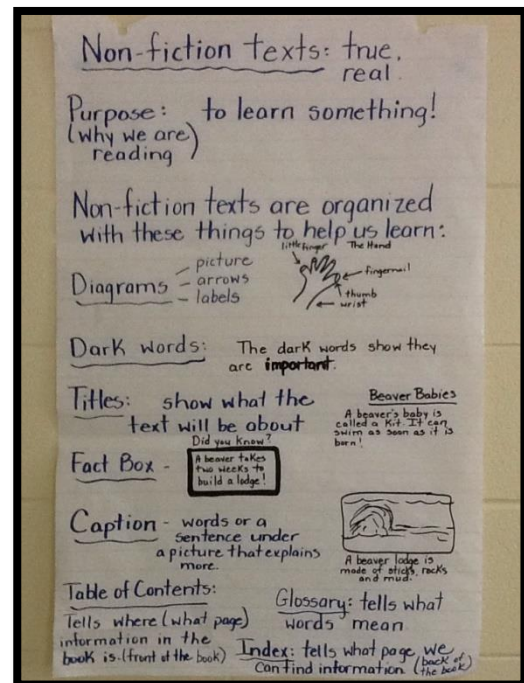 Non-fiction texts: true,
real.
Purpose: to learn something!
(why we are)
reading
Non-fiction texts are organized
with these things to help us learn:
Diagrams - picture
- arrows
- labels
The Hand
little finger
fingernail
thumb
wrist
Dark words: The dark words show they
are important.
Titles: show what the
text will be about
Beaver Babies
A beaver's baby is
called a Kit. It can
swim as soon as it is
born!
Fact Box -
Did you know?
A beaver takes
two weeks to
build a lodge!
Caption - words or a
sentence under
a picture that explains
more.
A beaver lodge is
made of sticks, rocks
and mud.
Table of Contents:
Tells where (what page)
information in the
book is-(front of the book)
Glossary: tells what
words mean
Index: tells what page we
can find information (back of
the book)